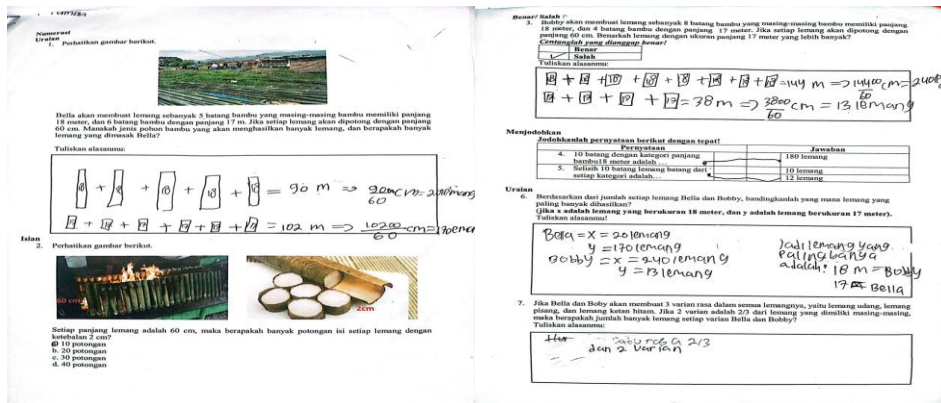 Numerasi
Uraian
1. Perhatikan gambar berikut.
Bella akan membuat lemang sebanyak 5 batang bambu yang masing-masing bambu memiliki panjang
18 meter, dan 6 batang bambu dengan panjang 17 m. Jika setiap lemang akan dipotong dengan panjang
60 cm. Manakah jenis pohon bambu yang akan menghasilkan banyak lemang, dan berapakah banyak
lemang yang dimasak Bella?
Tuliskan alasanmu:
18 + 18 + 18 + 18 + 18 = 90 m =>
60
17 + 17 + 17 + 17 + 17 + 17 = 102 m => 10200 cm =
60
Isian
2. Perhatikan gambar berikut.
60 cm
2cm
Setiap panjang lemang adalah 60 cm, maka berapakah banyak potongan isi setiap lemang dengan
ketebalan 2 cm?
a. 10 potongan
b. 20 potongan
c. 30 potongan
d. 40 potongan
Benar/ Salah
3. Bobby akan membuat lemang sebanyak 8 batang bambu yang masing-masing bambu memiliki panjang
18 meter, dan 4 batang bambu dengan panjang 17 meter. Jika setiap lemang akan dipotong dengan
panjang 60 cm. Benarkah lemang dengan ukuran panjang 17 meter yang lebih banyak?
Centanglah yang dianggap benar!
Benar
✓ Salah
Tuliskan alasanmu:
18 + 18 + 18 + 18 + 18 + 18 + 18 + 18 = 144 m => 14400 cm =
60
17 + 17 + 17 + 17 = 38 m => 3800 cm = 13 lemang
60
Menjodohkan
Jodohkanlah pernyataan berikut dengan tepat!
Pernyataan Jawaban
4. 10 batang dengan kategori panjang 180 lemang
bambu18 meter adalah...
5. Selisih 10 batang lemang batang dari 10 lemang
setiap kategori adalah... 12 lemang
Uraian
6. Berdasarkan dari jumlah setiap lemang Bella dan Bobby, bandingkanlah yang mana lemang yang
paling banyak dihasilkan?
(jika x adalah lemang yang berukuran 18 meter, dan y adalah lemang berukuran 17 meter).
Tuliskan alasanmu!
Bella = x = 20 lemang
y = 170 lemang
Bobby = x = 240 lemang
y = 13 lemang
Jadi lemang yang
paling banya
adalah: 18 m = Bobby
17 Bella
7. Jika Bella dan Boby akan membuat 3 varian rasa dalam semua lemangnya, yaitu lemang udang, lemang
pisang, dan lemang ketan hitam. Jika 2 varian adalah 2/3 dari lemang yang dimiliki masing-masing,
maka berapakah jumlah banyak lemang setiap varian Bella dan Bobby?
Tuliskan alasanmu:
satu rasa 2/3
dan 2 varian